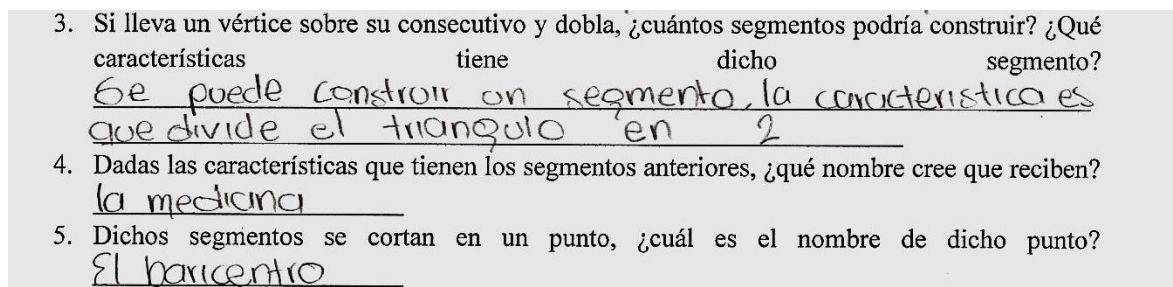 3. Si lleva un vértice sobre su consecutivo y dobla, ¿cuántos segmentos podría construir? ¿Qué
características tiene dicho segmento?
Se puede construir un segmento, la caracteristica es
que divide el triangulo en 2
4. Dadas las características que tienen los segmentos anteriores, ¿qué nombre cree que reciben?
la mediana
5. Dichos segmentos se cortan en un punto, ¿cuál es el nombre de dicho punto?
El baricentro